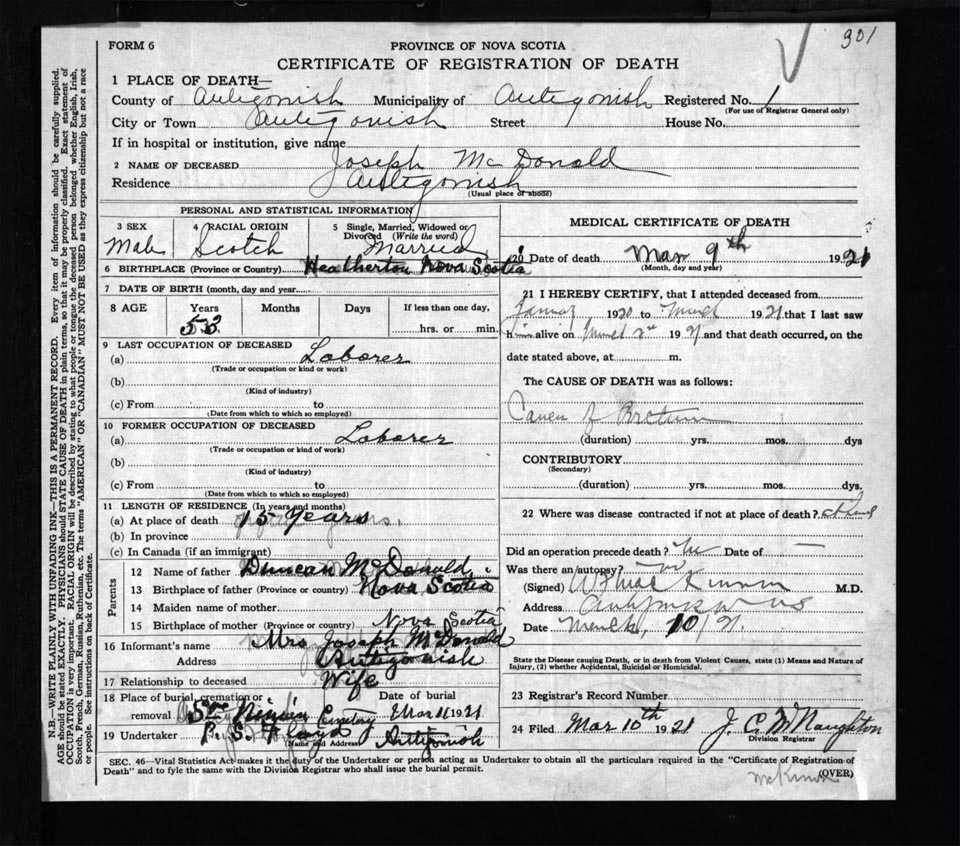 FORM 6
301
PROVINCE OF NOVA SCOTIA
CERTIFICATE OF REGISTRATION OF DEATH
1 PLACE OF DEATH—
County of Antigonish Municipality of Antigonish Registered No. 1
(For use of Registrar General only)
City or Town Antigonish Street House No.
If in hospital or institution, give name
2 NAME OF DECEASED Joseph McDonald
Residence Antigonish
(Usual place of abode)
PERSONAL AND STATISTICAL INFORMATION
3 SEX Male
4 RACIAL ORIGIN Scotch
5 Single, Married, Widowed or Divorced (Write the word) Married
6 BIRTHPLACE (Province or Country) Heatherton Nova Scotia
7 DATE OF BIRTH (month, day and year)
8 AGE Years Months Days If less than one day,
53 hrs. or min.
9 LAST OCCUPATION OF DECEASED
(a) Laborer
(Trade or occupation or kind or work)
(b)
(Kind of industry)
(c) From to
(Date from which to which so employed)
10 FORMER OCCUPATION OF DECEASED
(a) Laborer
(Trade or occupation or kind of work)
(b)
(Kind of industry)
(c) From to
(Date from which to which so employed)
11 LENGTH OF RESIDENCE (In years and months)
(a) At place of death 15 Years
(b) In province
(c) In Canada (if an immigrant)
Parents
12 Name of father Duncan McDonald
13 Birthplace of father (Province or country) Nova Scotia
14 Maiden name of mother
15 Birthplace of mother (Province or country) Nova Scotia
16 Informant's name Mrs Joseph McDonald
Address Antigonish
17 Relationship to deceased Wife
18 Place of burial, cremation or Date of burial
removal Cemetery Mar 11 1921
19 Undertaker Antigonish
(Name and Address)
MEDICAL CERTIFICATE OF DEATH
20 Date of death Mar 9th 1921
(Month, day and year)
21 I HEREBY CERTIFY, that I attended deceased from
1920 to March 1921 that I last saw
him alive on March 1921 and that death occurred, on the
date stated above, at m.
The CAUSE OF DEATH was as follows:
(duration) yrs. mos. dys
CONTRIBUTORY
(Secondary)
(duration) yrs. mos. dys.
22 Where was disease contracted if not at place of death?
Did an operation precede death? No Date of —
Was there an autopsy? No
(Signed) M.D.
Address Antigonish NS
Date March 10/21.
State the Disease causing Death, or in death from Violent Causes, state (1) Means and Nature of
Injury, (2) whether Accidental, Suicidal or Homicidal.
23 Registrar's Record Number
24 Filed Mar 10th 1921 J. C. McNaughton
Division Registrar
SEC. 46—Vital Statistics Act makes it the duty of the Undertaker or person acting as Undertaker to obtain all the particulars required in the "Certificate of Registration of
Death" and to fyle the same with the Division Registrar who shall issue the burial permit.
(OVER)
McKinnon
N.B.—WRITE PLAINLY WITH UNFADING INK—THIS IS A PERMANENT RECORD. Every item of information should be carefully supplied.
AGE should be stated EXACTLY. PHYSICIANS should STATE CAUSE OF DEATH in plain terms, so that it may be properly classified. Exact statement of
OCCUPATION is very important. RACIAL ORIGIN will be described by stating to what people or tongue the deceased person belonged whether English, Irish,
Scotch, French, German, Russian, Ruthenian, etc. The terms "AMERICAN" OR "CANADIAN" MUST NOT BE USED as they express citizenship but not a race
or people. See instructions on back of Certificate.